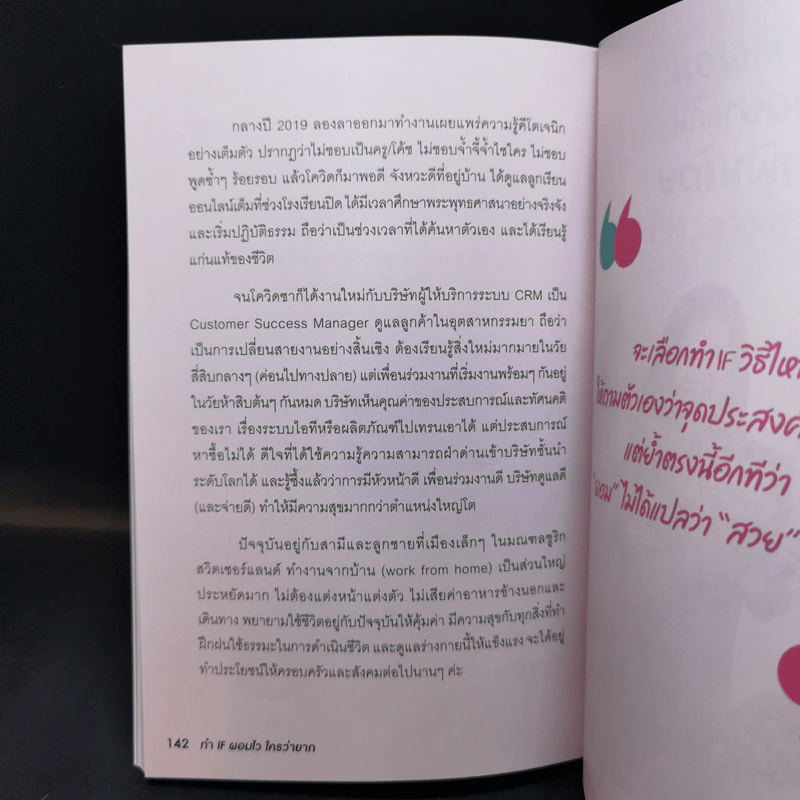 กลางปี 2019 ลองลาออกมาทำงานเผยแพร่ความรู้คีโตเจนิก
อย่างเต็มตัว ปรากฏว่าไม่ชอบเป็นครู/โค้ช ไม่ชอบจ้ำจี้จ้ำไชใคร ไม่ชอบ
พูดซ้ำๆ ร้อยรอบ แล้วโควิดก็มาพอดี จังหวะดีที่อยู่บ้าน ได้ดูแลลูกเรียน
ออนไลน์เต็มที่ช่วงโรงเรียนปิด ได้มีเวลาศึกษาพระพุทธศาสนาอย่างจริงจัง
และเริ่มปฏิบัติธรรม ถือว่าเป็นช่วงเวลาที่ได้ค้นหาตัวเอง และได้เรียนรู้
แก่นแท้ของชีวิต
จนโควิดซาก็ได้งานใหม่กับบริษัทผู้ให้บริการระบบ CRM เป็น
Customer Success Manager ดูแลลูกค้าในอุตสาหกรรมยา ถือว่า
เป็นการเปลี่ยนสายงานอย่างสิ้นเชิง ต้องเรียนรู้สิ่งใหม่มากมายในวัย
สี่สิบกลางๆ (ค่อนไปทางปลาย) แต่เพื่อนร่วมงานที่เริ่มงานพร้อมๆ กันอยู่
ในวัยห้าสิบต้นๆ กันหมด บริษัทเห็นคุณค่าของประสบการณ์และทัศนคติ
ของเรา เรื่องระบบไอทีหรือผลิตภัณฑ์ไปเทรนเอาได้ แต่ประสบการณ์
หาซื้อไม่ได้ ดีใจที่ได้ใช้ความรู้ความสามารถฝ่าด่านเข้าบริษัทชั้นนำ
ระดับโลกได้ และรู้ซึ้งแล้วว่าการมีหัวหน้าดี เพื่อนร่วมงานดี บริษัทดูแลดี
(และจ่ายดี) ทำให้มีความสุขมากกว่าตำแหน่งใหญ่โต
ปัจจุบันอยู่กับสามีและลูกชายที่เมืองเล็กๆ ในมณฑลซูริก
สวิตเซอร์แลนด์ ทำงานจากบ้าน (work from home) เป็นส่วนใหญ่
ประหยัดมาก ไม่ต้องแต่งหน้าแต่งตัว ไม่เสียค่าอาหารข้างนอกและ
เดินทาง พยายามใช้ชีวิตอยู่กับปัจจุบันให้คุ้มค่า มีความสุขกับทุกสิ่งที่ทำ
ฝึกฝนใช้ธรรมะในการดำเนินชีวิต และดูแลร่างกายนี้ให้แข็งแรง จะได้อยู่
ทำประโยชน์ให้ครอบครัวและสังคมต่อไปนานๆ ค่ะ
142 ทำ IF ผอมไว ใครว่ายาก
จะเลือกทำ IF วิธีไห
ให้ถามตัวเองว่าจุดประสงค
แต่ย้ำตรงนี้อีกทีว่า
"ผอม" ไม่ได้แปลว่า "สวย"